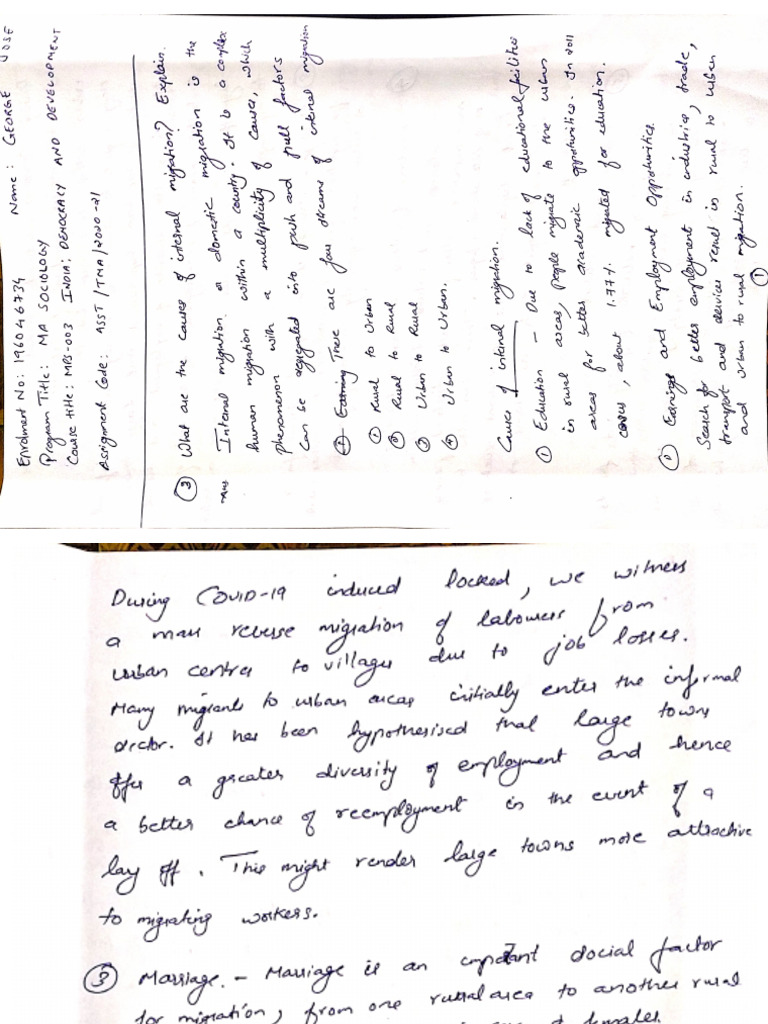 Enrolment No: 196046734 Name: GEORGE JOSE
Program Title: MA SOCIOLOGY
Course title: MPS-003 INDIA: DEMOCRACY AND DEVELOPMENT
Assignment Code: ASST/TMA/2020-21
③ What are the causes of internal migration? Explain.
Ans Internal migration or domestic migration is the
human migration within a country. It is a complex
phenomenon with a multiplicity of causes, which
can be segregated into push and pull factors
There are four streams of internal migration
① Rural to Urban
② Rural to Rural
③ Urban to Rural
④ Urban to Urban.
Causes of internal migration.
① Education – Due to lack of educational facilities
in rural areas, people migrate to the urban
areas for better academic oppotunities. In 2011
census, about 1.77% migrated for education.
② Earnings and Employment Oppotunities.
Search for better employment in industries, trade,
transport and services result in rural to urban
and urban to rural migration.
①
During COVID-19 induced locked, we witness
a mass reverse migration of labourers from
urban centres to villages due to job losses.
Many migrants to urban areas initially enter the informal
sector. It has been hypothesised that large towns
offer a greater diversity of employment and hence
a better chance of reemployment in the event of a
lay off. This might render large towns more attractive
to migrating workers.
③ Marriage. – Marriage is an important social factor
for migration, from one rural area to another rural
females.